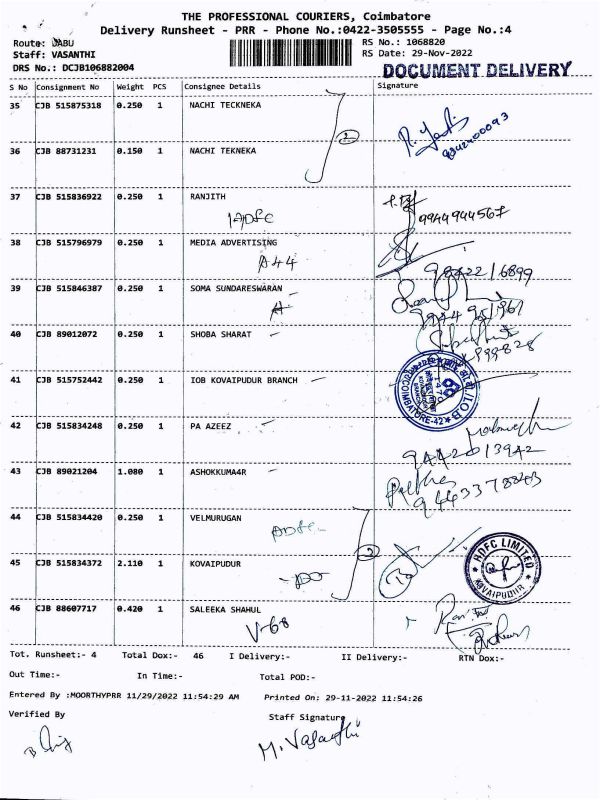 THE PROFESSIONAL COURIERS, Coimbatore
Delivery Runsheet - PRR - Phone No.:0422-3505555 - Page No.:4
Route: JABU
RS No.: 1068820
Staff: VASANTHI
RS Date: 29-Nov-2022
DRS No.: DCJB106882004
DOCUMENT DELIVERY
S No Consignment No Weight PCS Consignee Details Signature
35 CJB 515875318 0.250 1 NACHI TECKNEKA
2
9842400093
36 CJB 88731231 0.150 1 NACHI TEKNEKA
37 CJB 515836922 0.250 1 RANJITH
9944944567
38 CJB 515796979 0.250 1 MEDIA ADVERTISING
A44
9842216899
39 CJB 515846387 0.250 1 SOMA SUNDARESWARAN
A
40 CJB 89012072 0.250 1 SHOBA SHARAT
41 CJB 515752442 0.250 1 IOB KOVAIPUDUR BRANCH
COIMBATORE-42
42 CJB 515834248 0.250 1 PA AZEEZ
9442013942
43 CJB 89021204 1.080 1 ASHOKKUMA4R
9443378843
44 CJB 515834420 0.250 1 VELMURUGAN
2
45 CJB 515834372 2.110 1 KOVAIPUDUR
HDFC LIMITED
KOVAIPUDUR
46 CJB 88607717 0.420 1 SALEEKA SHAHUL
V-68
Tot. Runsheet:- 4 Total Dox:- 46 I Delivery:- II Delivery:- RTN Dox:-
Out Time:- In Time:- Total POD:-
Entered By :MOORTHYPRR 11/29/2022 11:54:29 AM Printed On: 29-11-2022 11:54:26
Verified By Staff Signature
M. Vasanthi